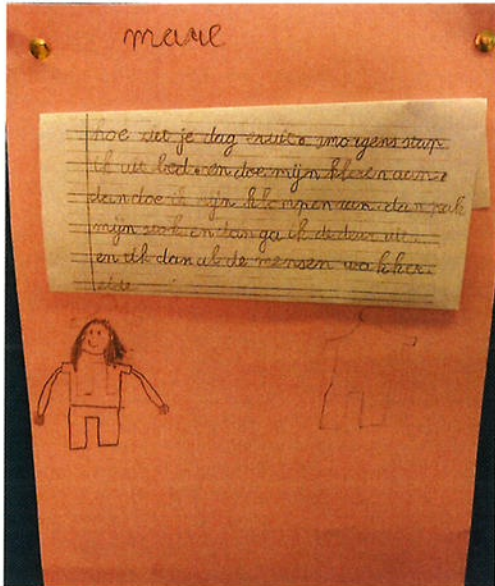 mare
hoe ziet je dag eruit. smorgens stap
ik uit bed. en doe mijn kleren aan.
dan doe ik mijn klompen aan. dan pak
mijn stok en dan ga ik de deur uit.
en tik dan al de mensen wakker.